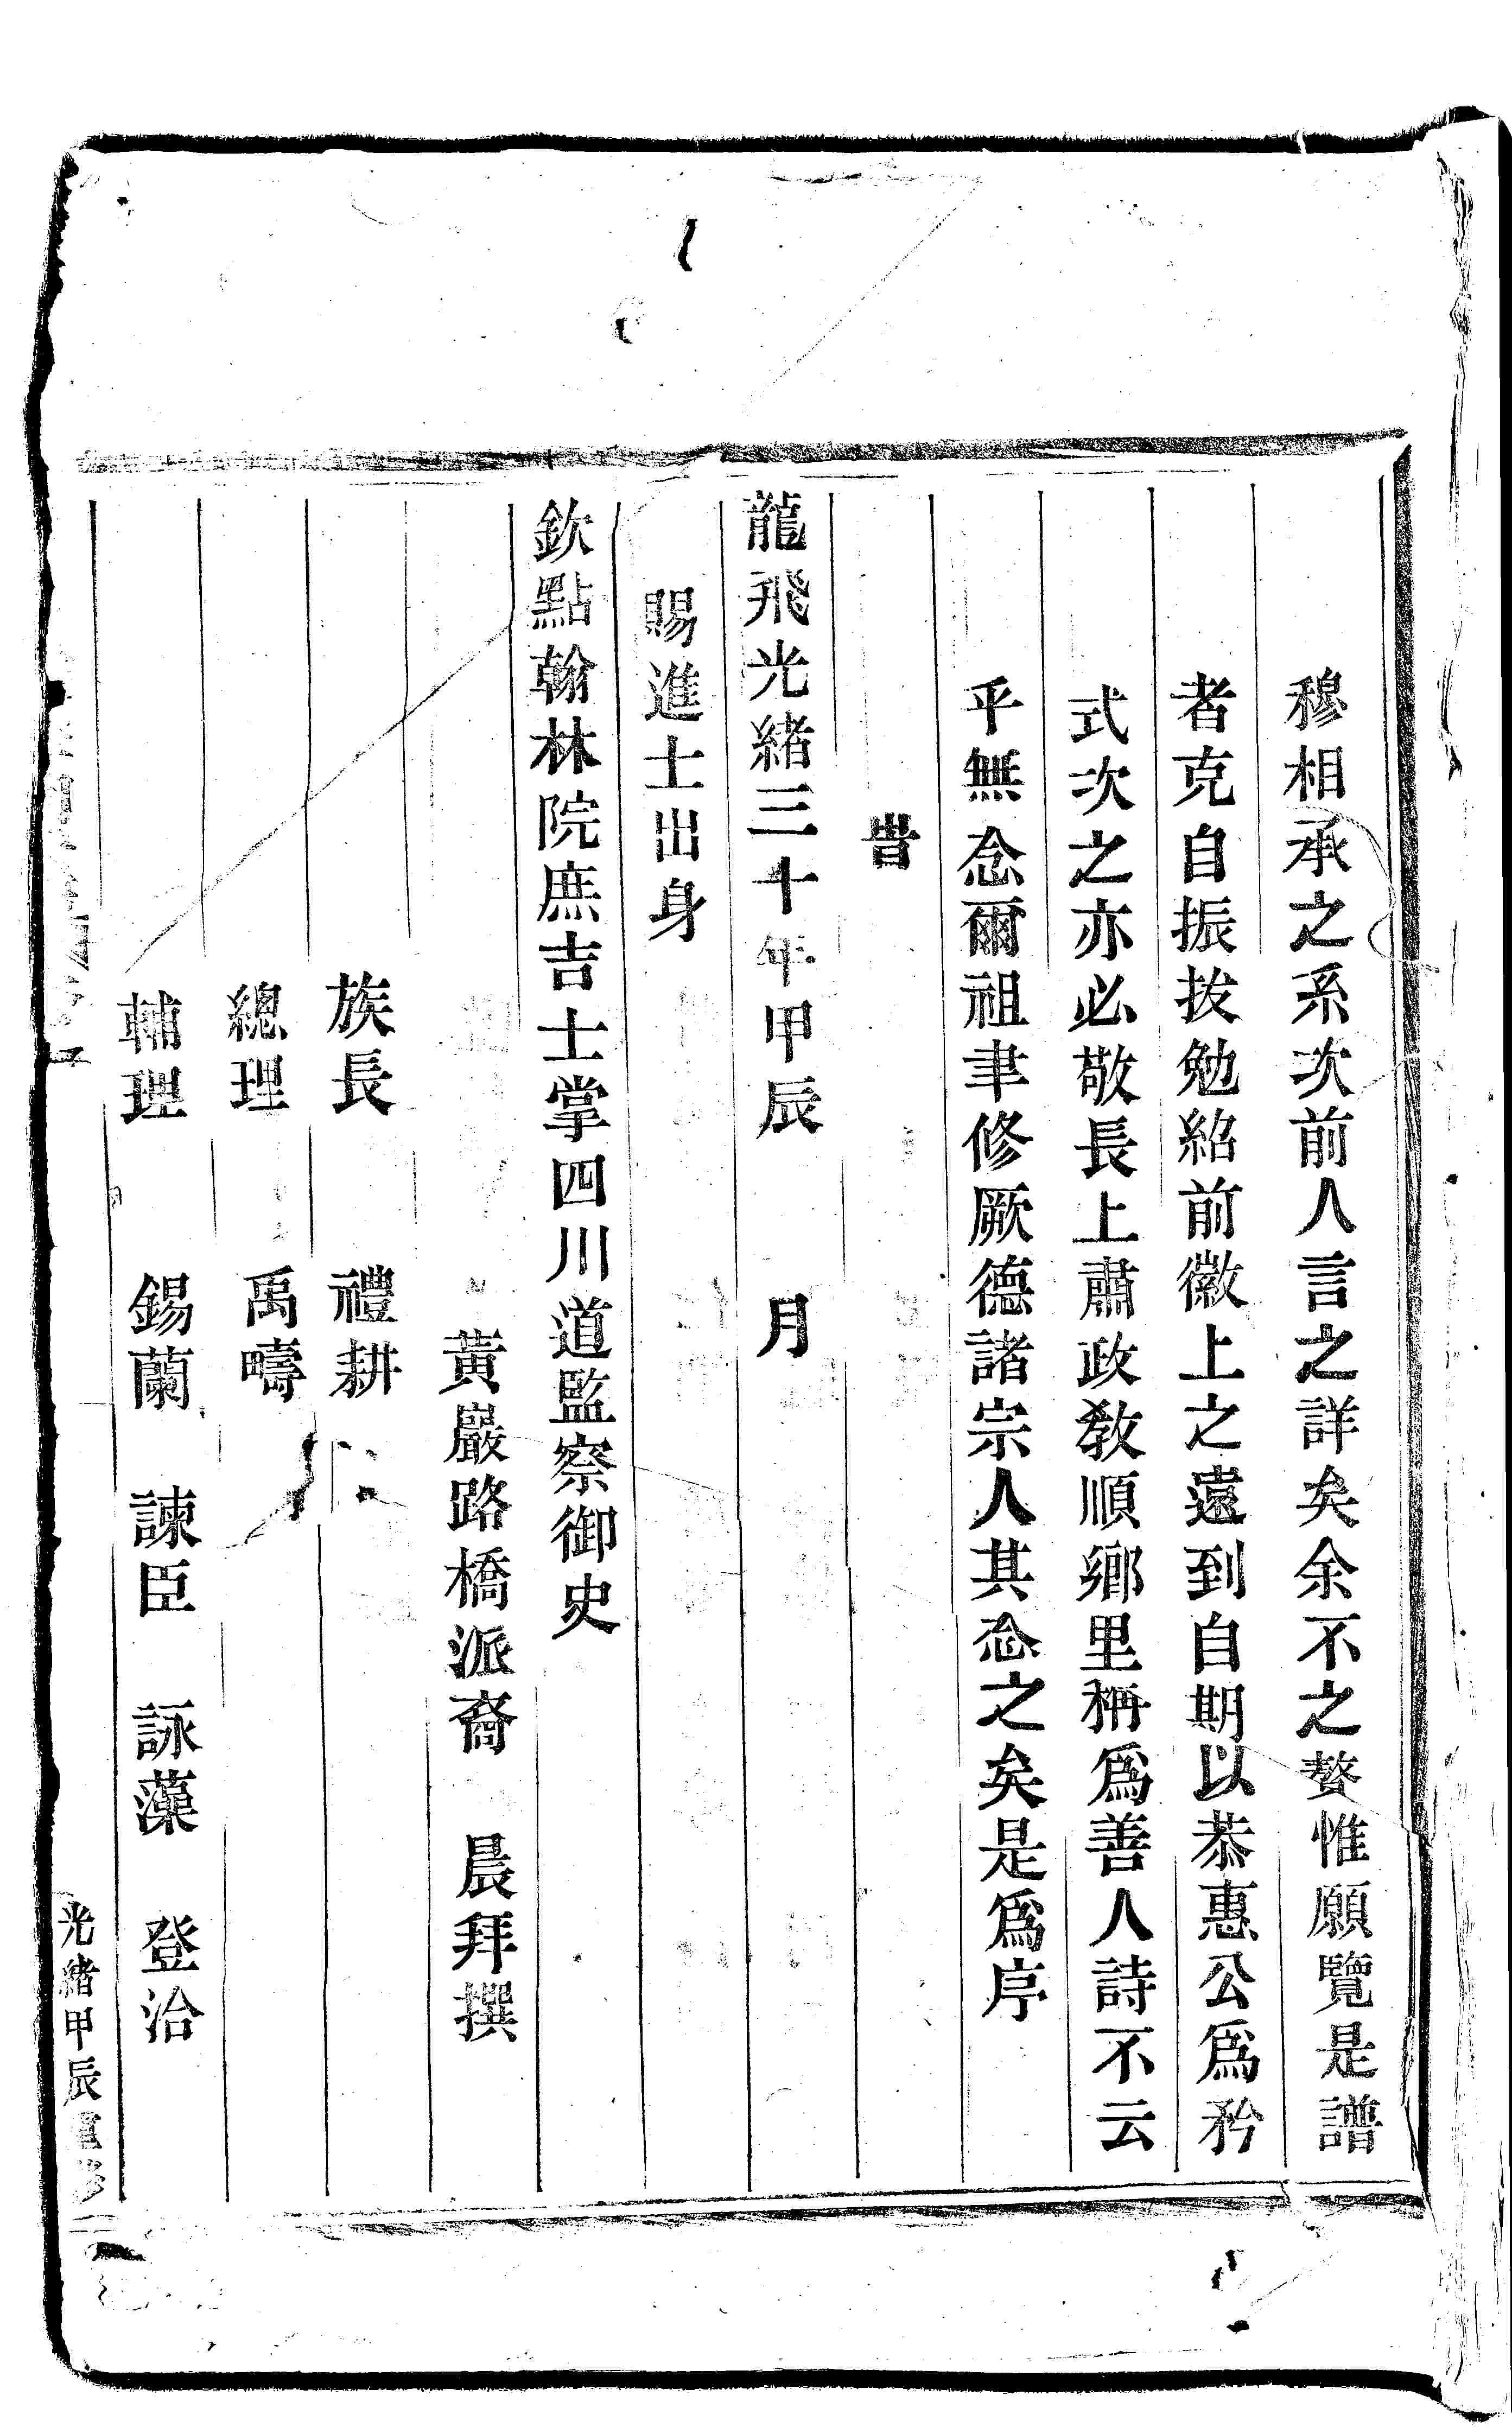 穆相承之系次前人言之詳矣余不之贅惟願覽是譜
者克自振拔勉紹前徽上之遠到自期以恭惠公爲矜
式次之亦必敬長上肅政教順鄉里稱爲善人詩不云
乎無念爾祖聿修厥德諸宗人其念之矣是爲序
旹
龍飛光緒三十年甲辰 月
賜進士出身
欽點翰林院庶吉士掌四川道監察御史
黃巖路橋派裔 晨拜撰
族長 禮耕
總理 禹疇
輔理 錫蘭 諫臣 詠藻 登治
光緒甲辰重修